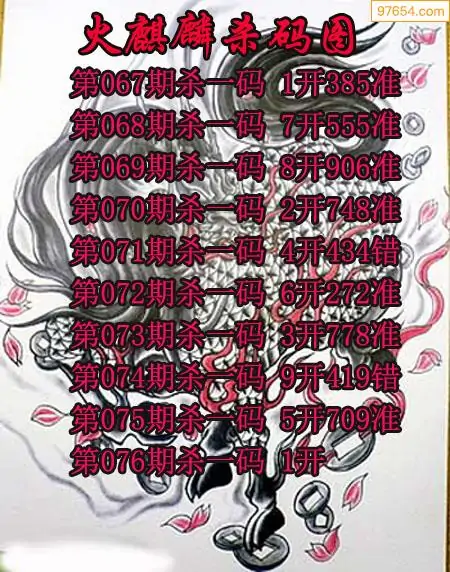 97654.com
火麒麟杀码图
第067期杀一码 1开385准
第068期杀一码 7开555准
第069期杀一码 8开906准
第070期杀一码 2开748准
第071期杀一码 4开434错
第072期杀一码 6开272准
第073期杀一码 3开778准
第074期杀一码 9开419错
第075期杀一码 5开709准
第076期杀一码 1开